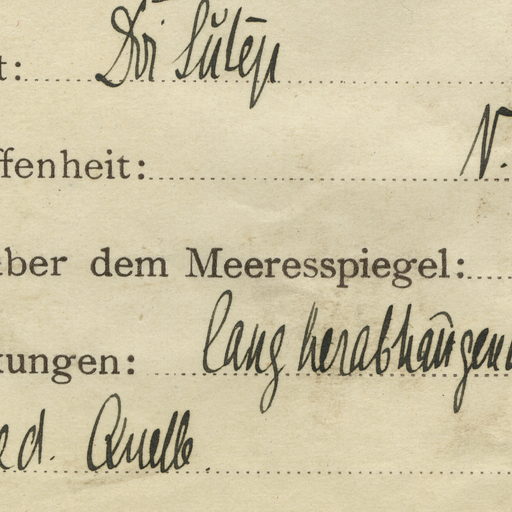 t: Doi Sutep
ffenheit: N.
über dem Meeresspiegel:
kungen: lang herabhängend
ed. Quelle.